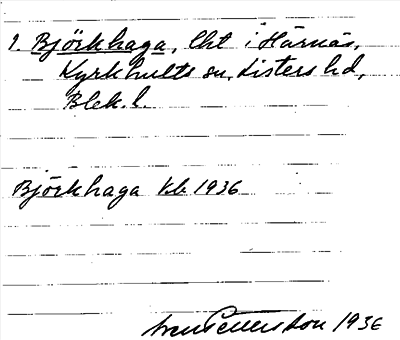 1. Björkhaga, lht i Härnäs,
Kyrkhults sn, Listers hd,
Blek. l.
Björkhaga Kb 1936
Pettersson 1936